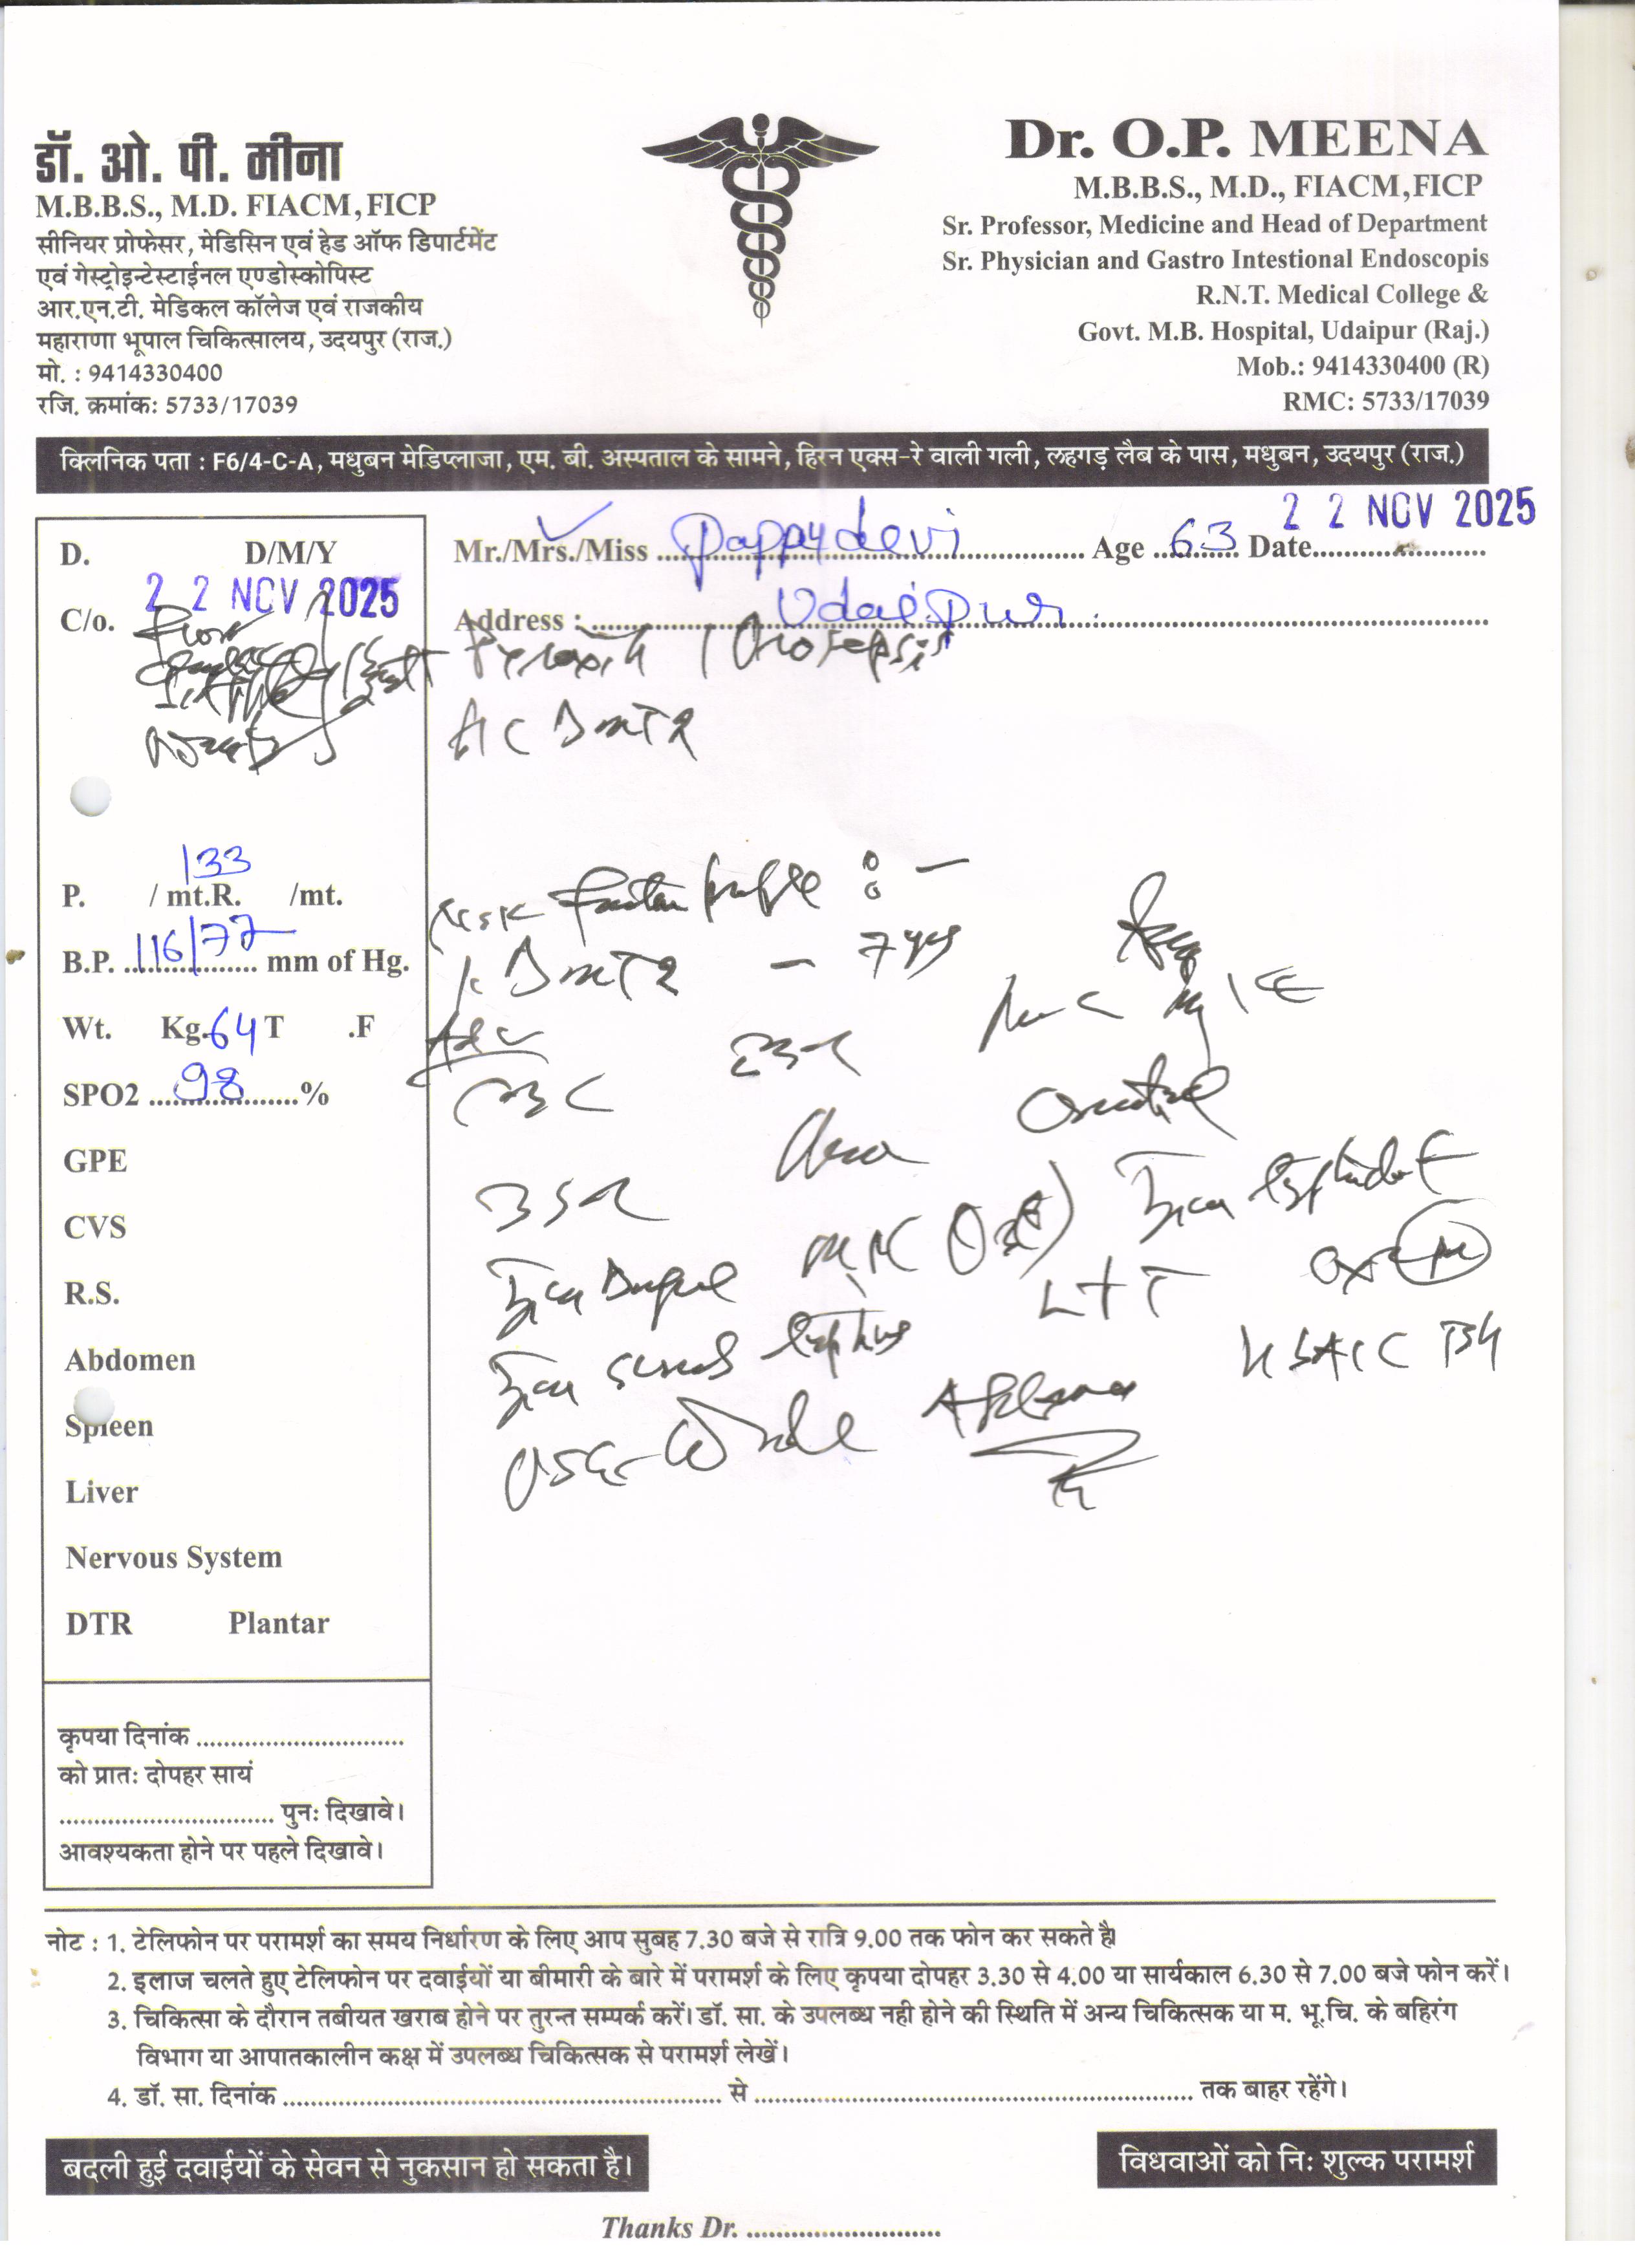 डॉ. ओ. पी. मीना
M.B.B.S., M.D. FIACM, FICP
सीनियर प्रोफेसर, मेडिसिन एवं हेड ऑफ डिपार्टमेंट
एवं गेस्ट्रोइन्टेस्टाईनल एण्डोस्कोपिस्ट
आर.एन.टी. मेडिकल कॉलेज एवं राजकीय
महाराणा भूपाल चिकित्सालय, उदयपुर (राज.)
मो. : 9414330400
रजि. क्रमांक: 5733/17039
Dr. O.P. MEENA
M.B.B.S., M.D., FIACM, FICP
Sr. Professor, Medicine and Head of Department
Sr. Physician and Gastro Intestional Endoscopis
R.N.T. Medical College &
Govt. M.B. Hospital, Udaipur (Raj.)
Mob.: 9414330400 (R)
RMC: 5733/17039
क्लिनिक पता : F6/4-C-A, मधुबन मेडिप्लाजा, एम. बी. अस्पताल के सामने, हिरन एक्स-रे वाली गली, लहगड़ लैब के पास, मधुबन, उदयपुर (राज.)
Mr./Mrs./Miss Pappy devi Age 63 Date 22 NOV 2025
Address : Udaipur
D. D/M/Y
22 NOV 2025
C/o.
P. 133 / mt.R. /mt.
B.P. 116/77 mm of Hg.
Wt. Kg. 64 T .F
SPO2 98 %
GPE
CVS
R.S.
Abdomen
Spleen
Liver
Nervous System
DTR Plantar
कृपया दिनांक
को प्रातः दोपहर सायं
पुनः दिखावे।
आवश्यकता होने पर पहले दिखावे।
Urosepsis
DMT2
Risk Factor profile : -
1. DMT2 - 7 yrs
Adv
CBC ESR
Urea
LFT
HbA1C
USG Whole Abdomen
नोट : 1. टेलिफोन पर परामर्श का समय निर्धारण के लिए आप सुबह 7.30 बजे से रात्रि 9.00 तक फोन कर सकते है।
2. इलाज चलते हुए टेलिफोन पर दवाईयों या बीमारी के बारे में परामर्श के लिए कृपया दोपहर 3.30 से 4.00 या सार्यकाल 6.30 से 7.00 बजे फोन करें।
3. चिकित्सा के दौरान तबीयत खराब होने पर तुरन्त सम्पर्क करें। डॉ. सा. के उपलब्ध नही होने की स्थिति में अन्य चिकित्सक या म. भू.चि. के बहिरंग
विभाग या आपातकालीन कक्ष में उपलब्ध चिकित्सक से परामर्श लेखें।
4. डॉ. सा. दिनांक से तक बाहर रहेंगे।
बदली हुई दवाईयों के सेवन से नुकसान हो सकता है।
विधवाओं को निः शुल्क परामर्श
Thanks Dr.